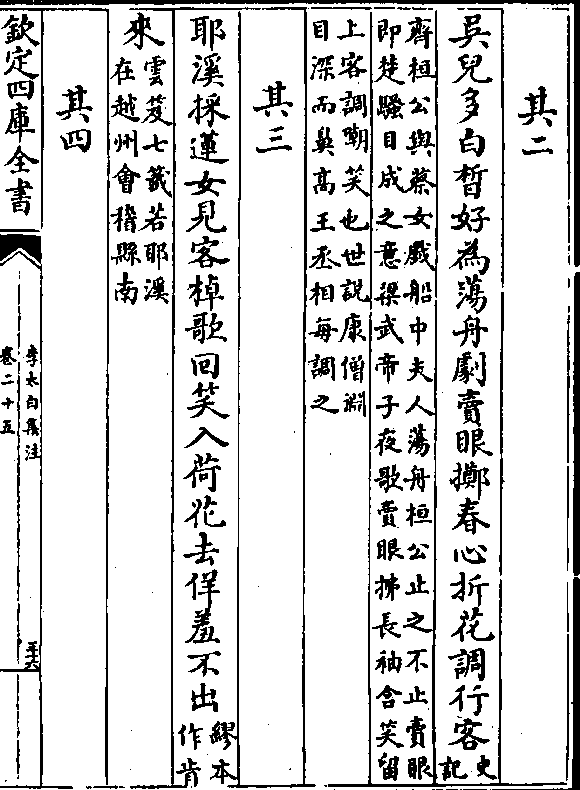 其二
吳兒多白皙好為蕩舟劇賣眼擲春心折花調行客史記
齊桓公與蔡女戲船中夫人蕩舟桓公止之不止賣眼
即楚騷目成之意梁武帝子夜歌賣眼拂長袖含笑留
上客調嘲笑也世說康僧淵
目深而鼻高王丞相每調之
其三
耶溪採蓮女見客棹歌回笑入荷花去佯羞不出繆本作肯
來雲笈七籤若耶溪
在越州會稽縣南
其四
欽定四庫全書
李太白集注
卷二十五
三十六